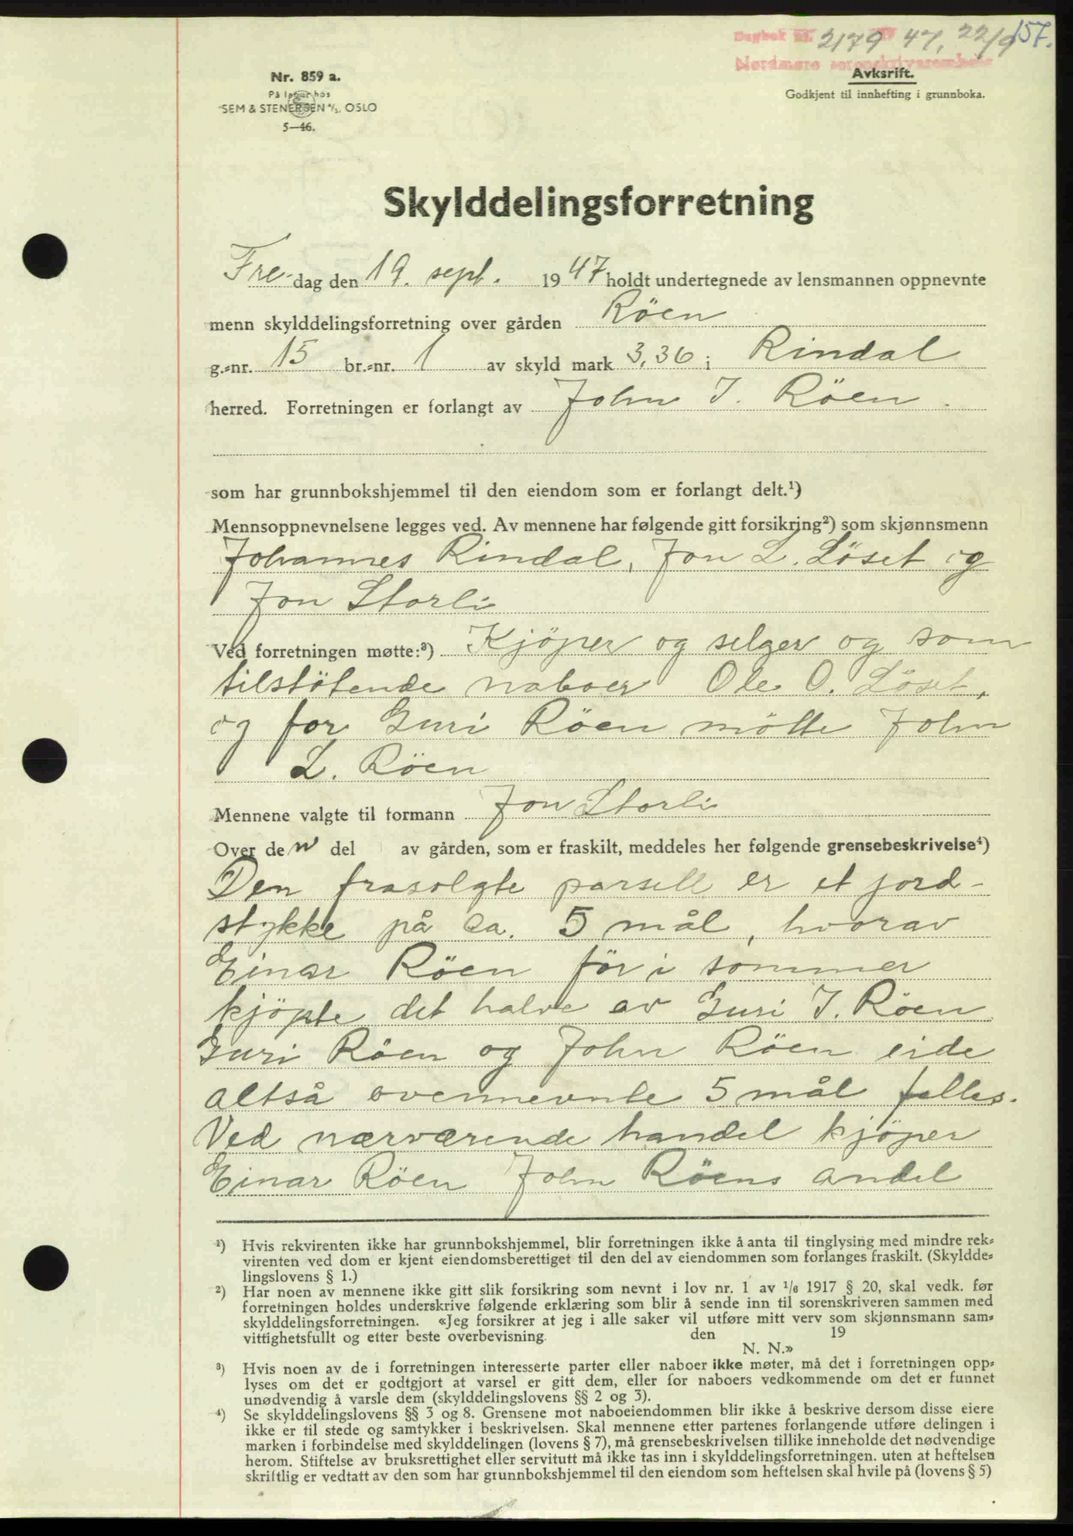 157.
Dagbok nr. 2179 47, 22/9
Nordmøre sorenskriverembete
Nr. 859 a.
På lager hos
SEM & STENERSEN A/S, OSLO
5—46.
Avksrift.
Godkjent til innhefting i grunnboka.
Skylddelingsforretning
Fre-dag den 19. sept. 1947 holdt undertegnede av lensmannen oppnevnte
menn skylddelingsforretning over gården Röen
g.-nr. 15 br.-nr. 1 av skyld mark 3,36 i Rindal
herred. Forretningen er forlangt av John I. Röen.
som har grunnbokshjemmel til den eiendom som er forlangt delt.¹)
Mennsoppnevnelsene legges ved. Av mennene har følgende gitt forsikring²) som skjønnsmenn
Johannes Rindal, Jon L. Löset og
Jon Storli
Ved forretningen møtte:³) Kjöper og selger og som
tilstötende naboer Ole O. Löset,
og for Guri Röen mötte John
L. Röen
Mennene valgte til formann Jon Storli
Over den del av gården, som er fraskilt, meddeles her følgende grensebeskrivelse⁴)
Den frasolgte parsell er et jord-
stykke på ca. 5 mål, hvorav
Einar Röen för i sommer
kjöpte det halve av Guri I. Röen
Guri Röen og John Röen eide
altså ovennevnte 5 mål felles.
Ved nærværende handel kjöper
Einar Röen John Röens andel
¹) Hvis rekvirenten ikke har grunnbokshjemmel, blir forretningen ikke å anta til tinglysing med mindre rek-
virenten ved dom er kjent eiendomsberettiget til den del av eiendommen som forlanges fraskilt. (Skyldde-
lingslovens § 1.)
²) Har noen av mennene ikke gitt slik forsikring som nevnt i lov nr. 1 av 1/6 1917 § 20, skal vedk. før
forretningen holdes underskrive følgende erklæring som blir å sende inn til sorenskriveren sammen med
skylddelingsforretningen. «Jeg forsikrer at jeg i alle saker vil utføre mitt verv som skjønnsmann sam-
vittighetsfullt og etter beste overbevisning. den 19
N. N.»
³) Hvis noen av de i forretningen interesserte parter eller naboer ikke møter, må det i forretningen opp-
lyses om det er godtgjort at varsel er gitt dem, eller for naboers vedkommende om det er funnet
unødvendig å varsle dem (skylddelingslovens §§ 2 og 3).
⁴) Se skylddelingslovens §§ 3 og 8. Grensene mot naboeiendommen blir ikke å beskrive dersom disse eiere
ikke er til stede og samtykker i beskrivelsen. Skal mennene etter partenes forlangende utføre delingen i
marken i forbindelse med skylddelingen (lovens § 7), må grensebeskrivelsen tillike inneholde det nødvendige
herom. Stiftelse av bruksrettighet eller servitutt må ikke tas inn i skylddelingsforretningen. uten at heftelsen
skriftlig er vedtatt av den som har grunnbokshjemmel til den eiendom som heftelsen skal hvile på (lovens § 5)